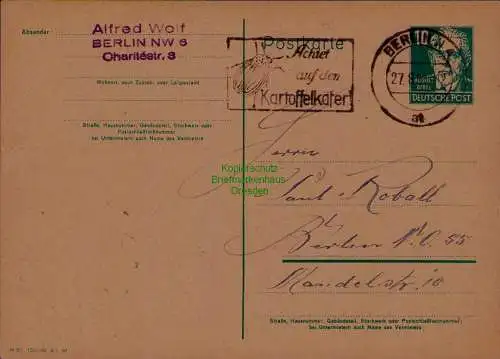 Absender:
Alfred Wolf
BERLIN NW 6
Charitéstr. 3
Wohnort, auch Zustell- oder Leitpostamt
Straße, Hausnummer, Gebäudeteil, Stockwerk oder
Postschließfachnummer
bei Untermietern auch Name des Vermieters
Postkarte
Achtet
auf den
Kartoffelkäfer!
BERLIN
27.
at
DEUTSCHE POST
Kopierschutz
Briefmarkenhaus-
Dresden
Herrn
Paul Roball
Berlin N.O. 55
Mandelstr. 10
Straße, Hausnummer, Gebäudeteil, Stockwerk oder Postschließfachnummer;
bei Untermietern auch Name des Vermieters